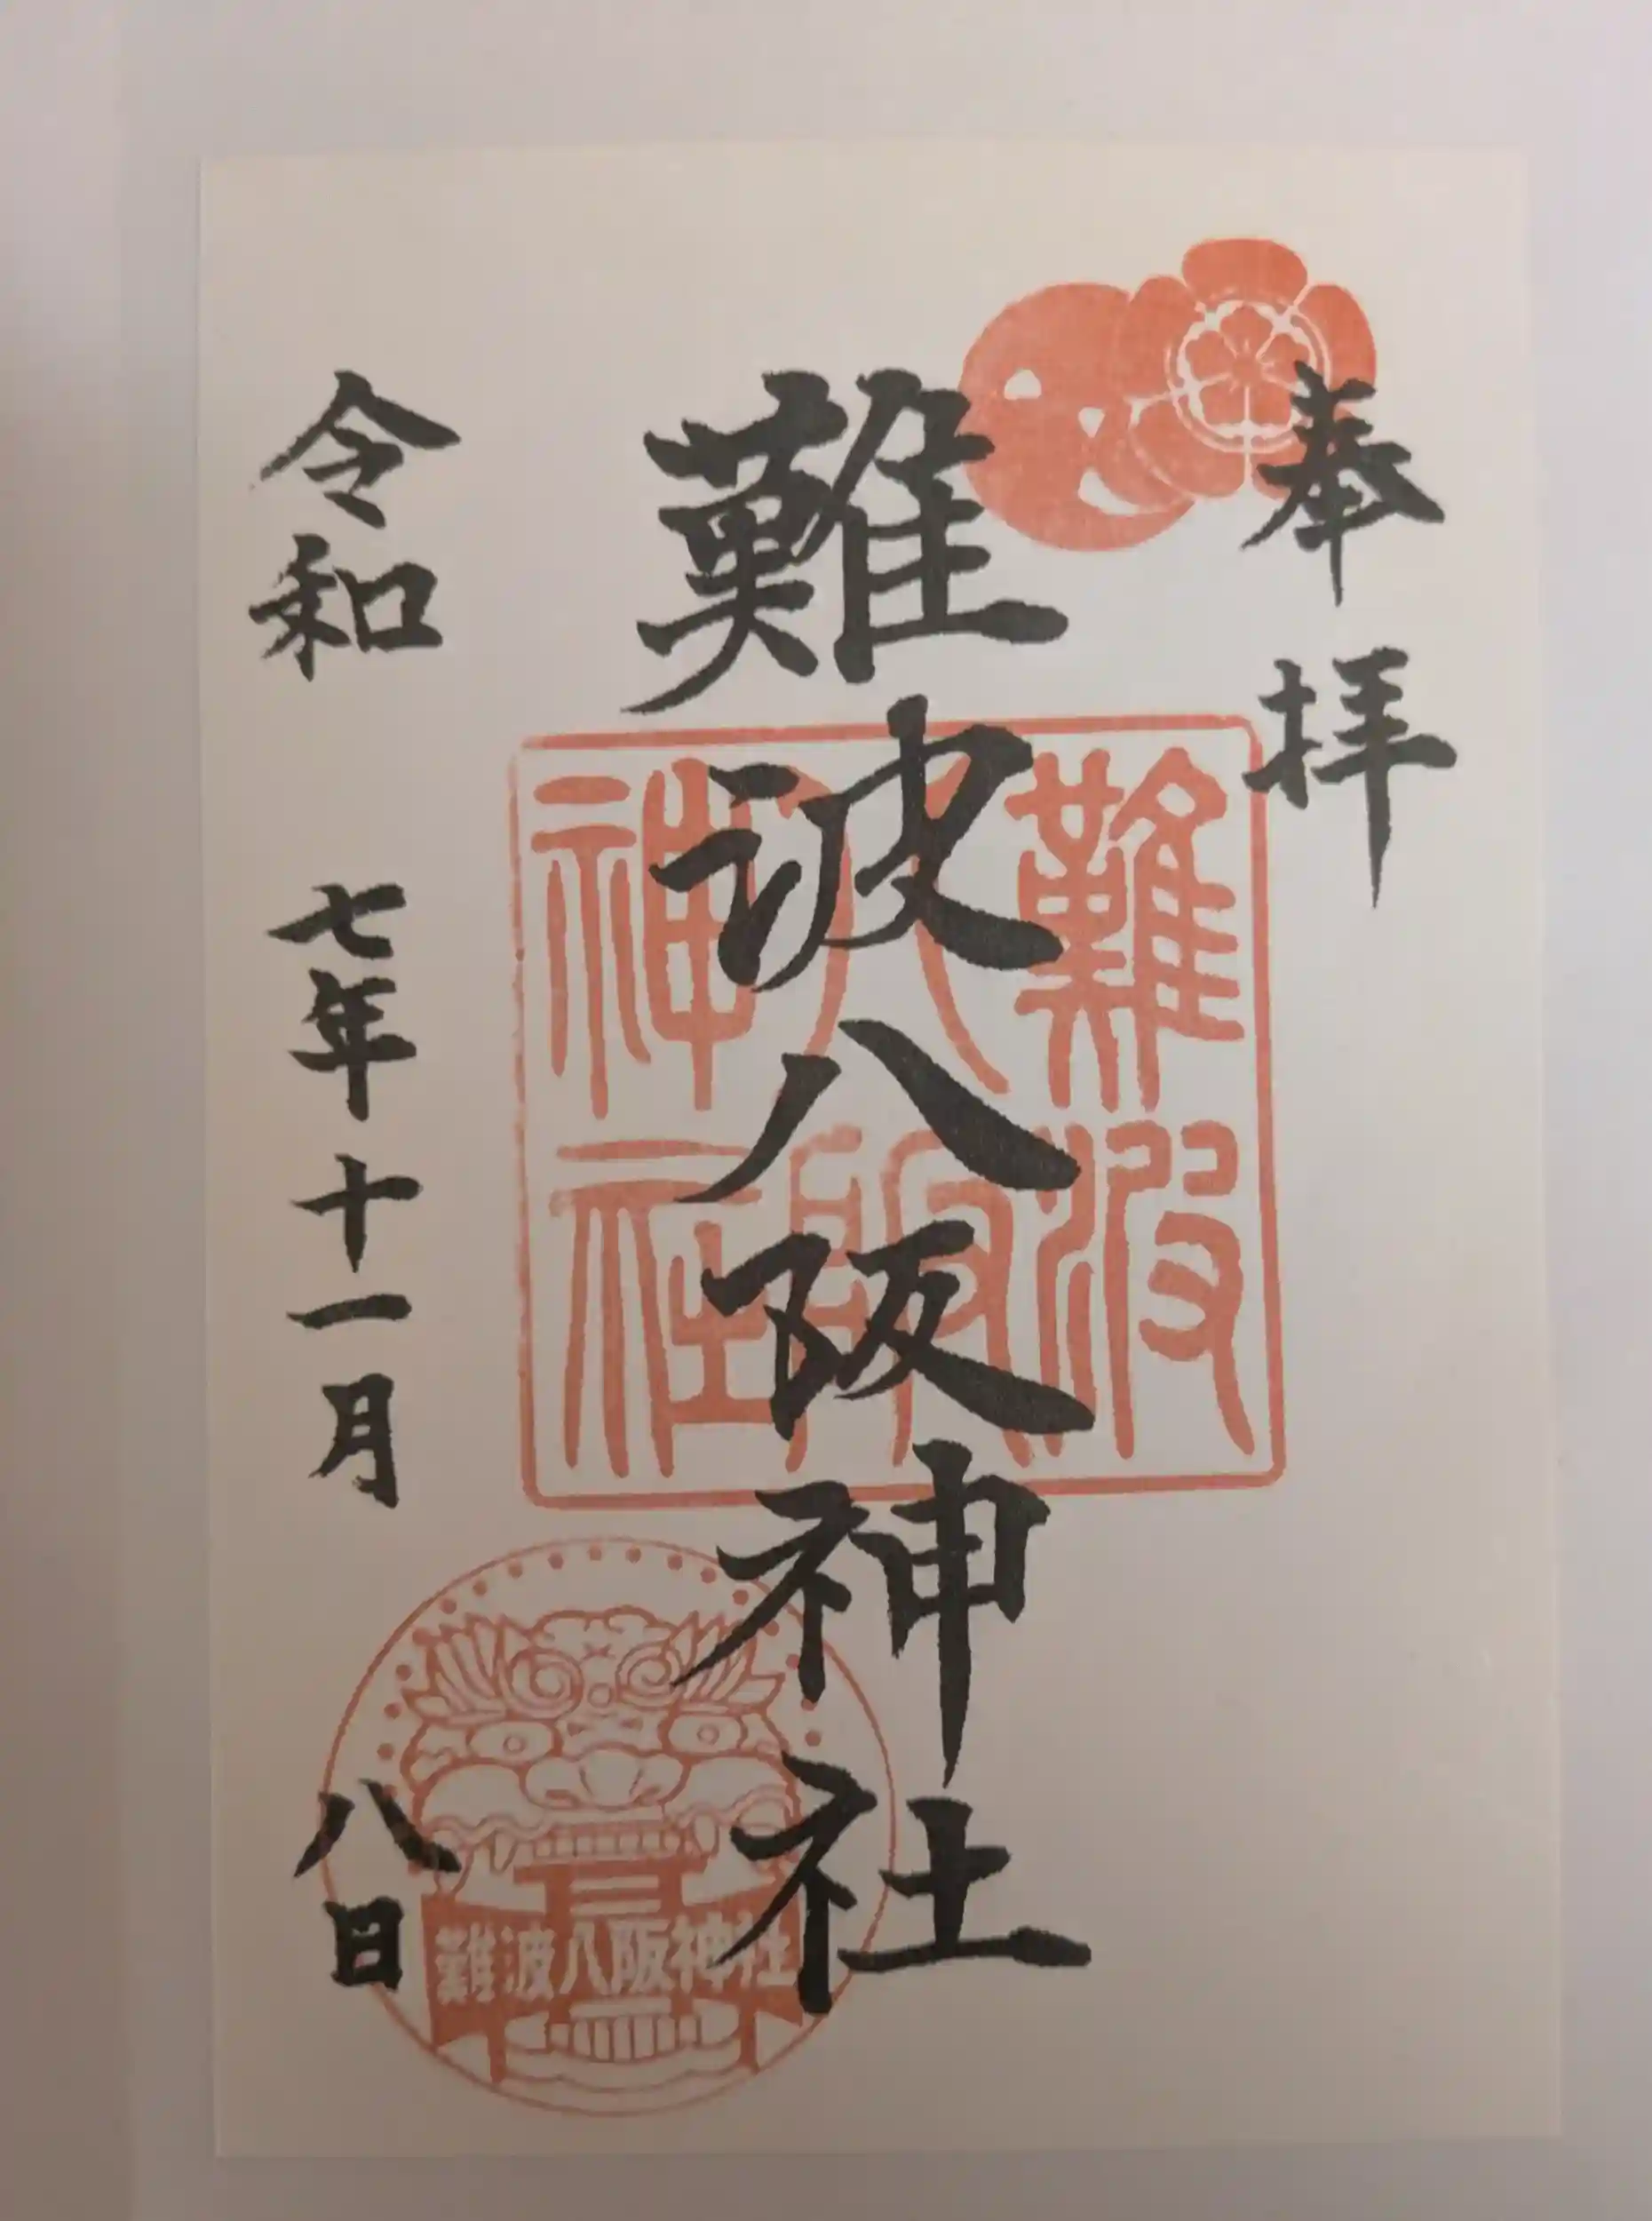 奉拝
難波八阪神社
難波
八阪
神社
令和 七年十一月 八日
難波八阪神社